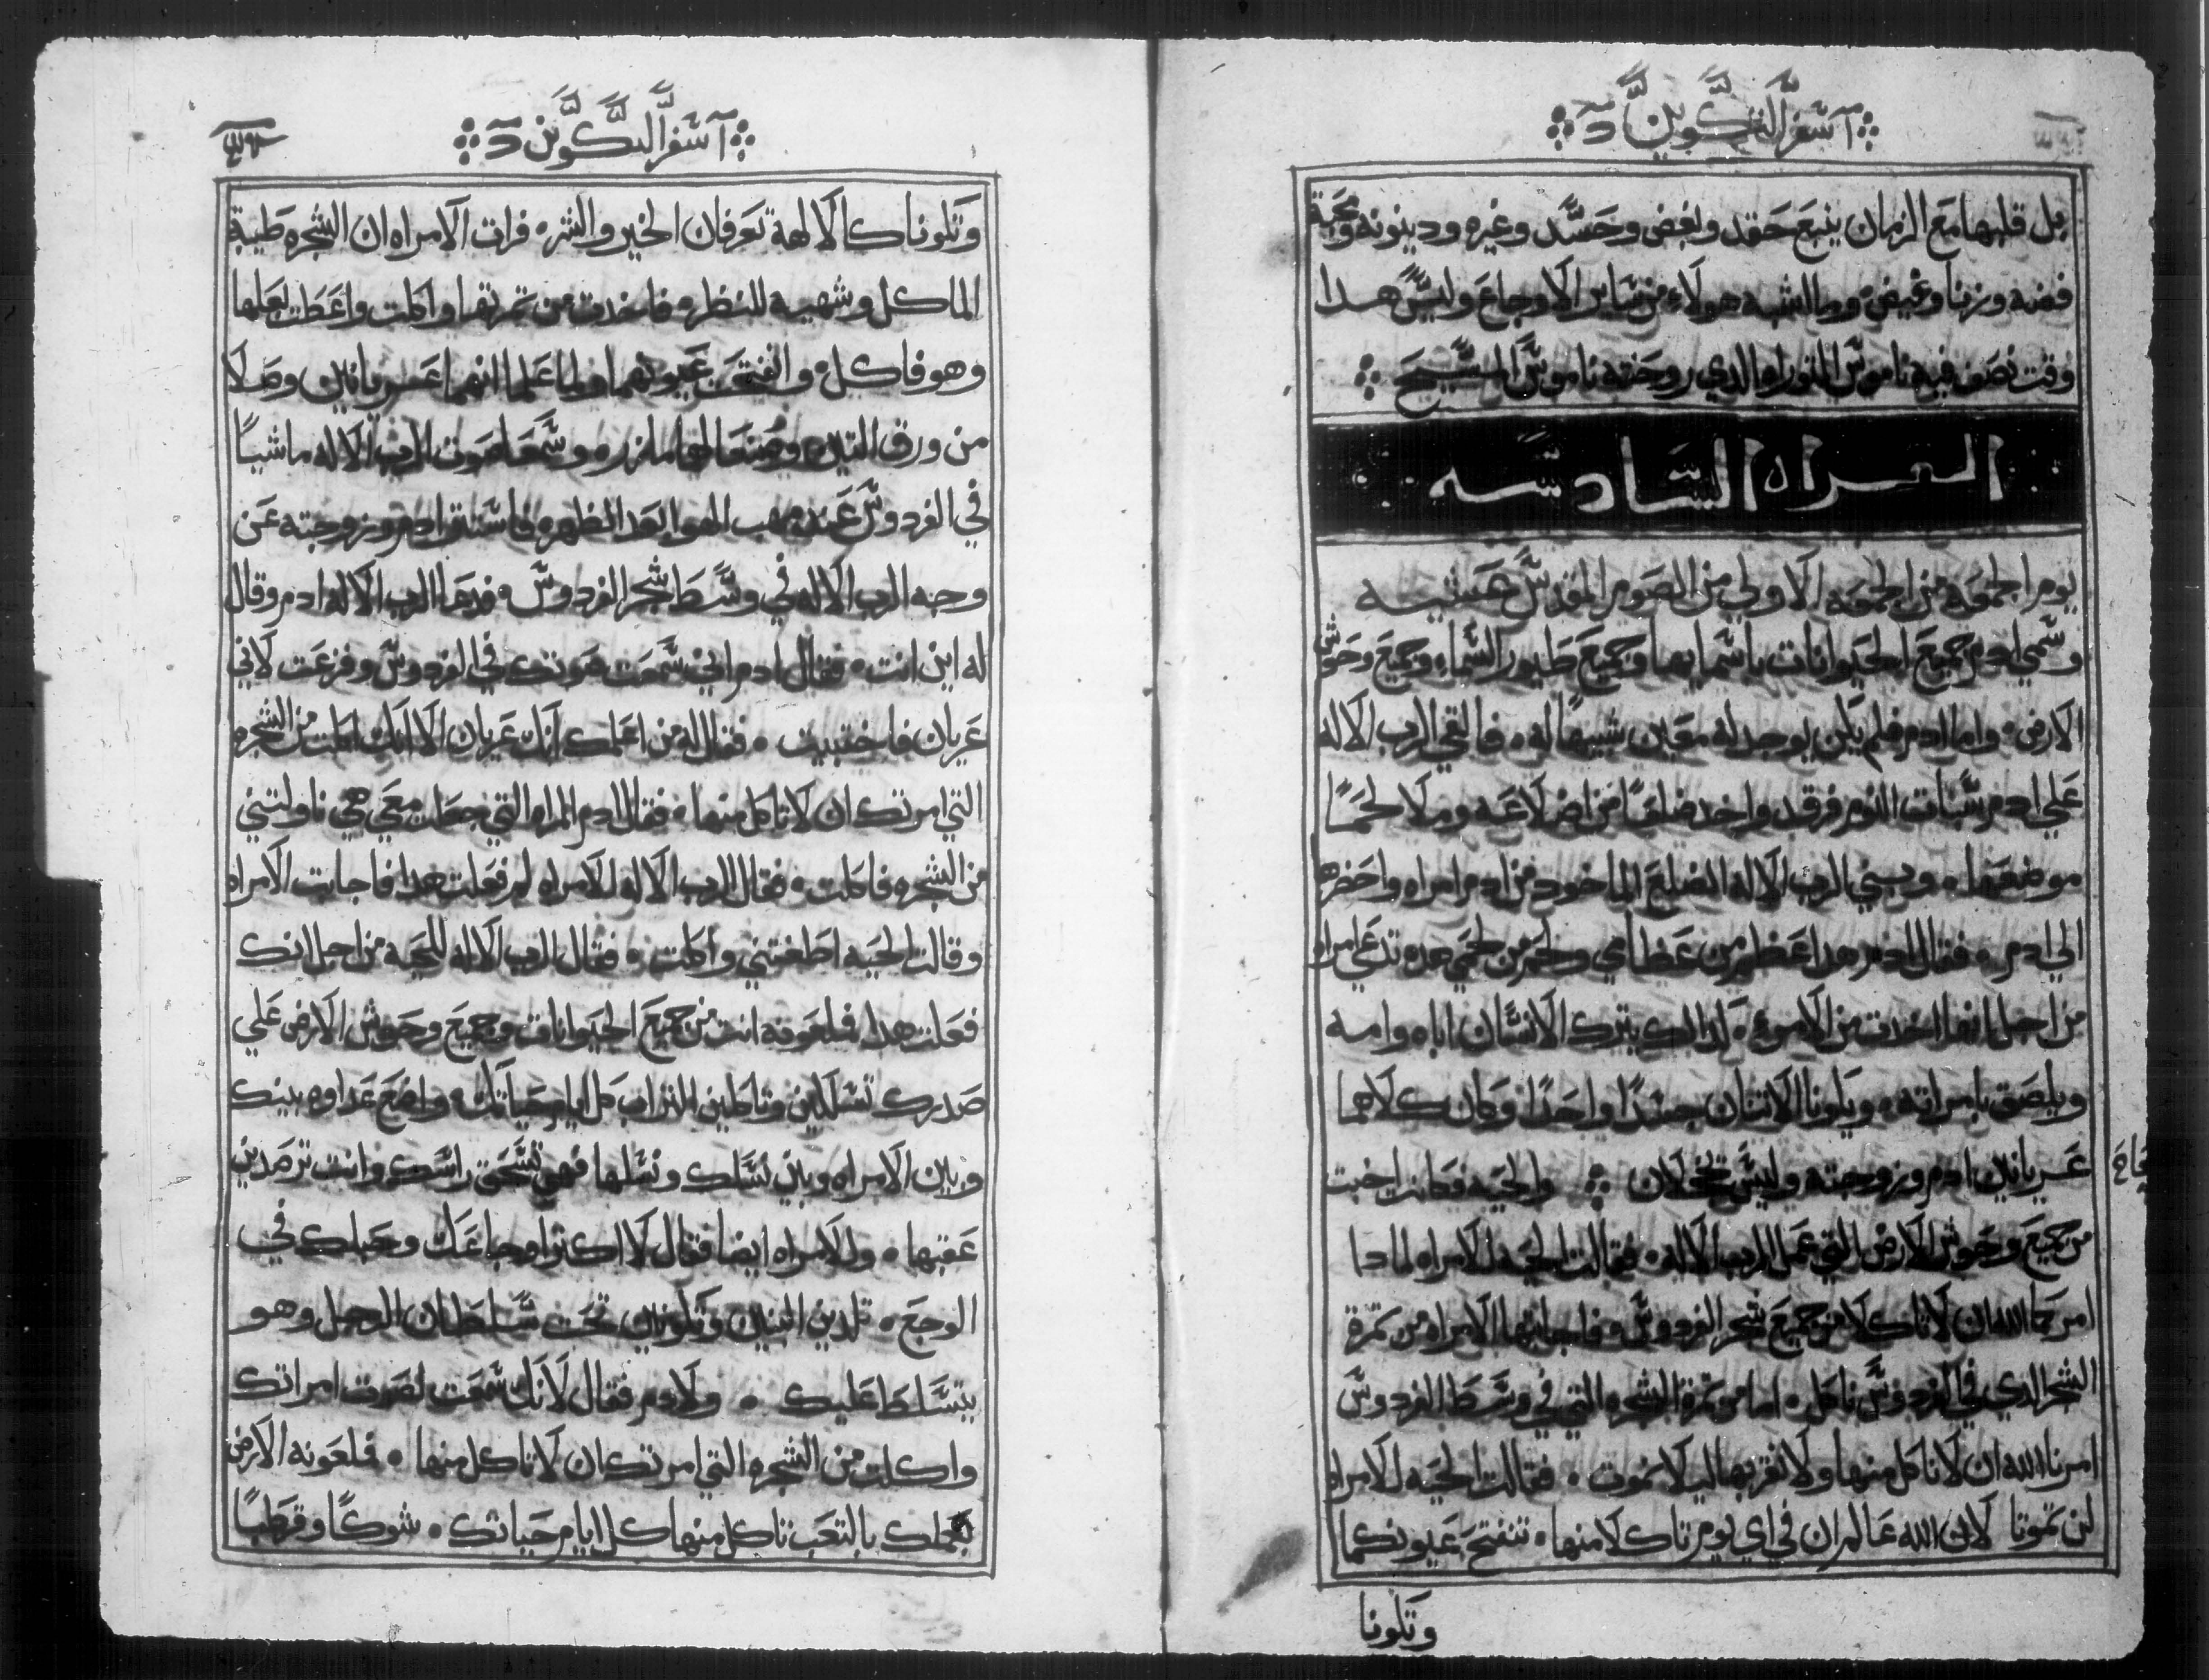 آ سفر التكوين د
بل قلبها مع الزمان ينبع حقد وبغض وحسد وغيره ودينونه ومحبة
فضه وزنا وغيض وما اشبه هولاء من ساير الاوجاع وليس هدا
وقت نصف فيه ناموس التوراه الدي روحته ناموس المسيح
القراه السادسه
يوم الجمعه من الجمعه الاولي من الصوم المقدس عشيه
وسمي ادم جميع الحيوانات باسمايها وجميع طيور السماء وجميع وحوش
الارض ۰ واما ادم فلم يكن يوجد له معين شبيها له ۰ فالقي الرب الاله
علي ادم سبات النوم فرقد واخد ضلعًا من اضلاعه وملا لحمًا
موضعها ۰ وبني الرب الاله الضلع الماخود من ادم امراه واحضرها
الي ادم ۰ فقال ادم هدا عظم من عظامي ولحم من لحمي هده تدعي امراه
من اجل انها اخدت من الامرء ۰ لدالك يترك الانسان اباه وامه
ويلصق بامراته ۰ ويكونا الاتنان جسدًا واحدًا وكان كلاهما
عريانين ادم وزوجته وليس يخجلان والحيه فكانت اخبت
من جميع وحوش الارض التي عمل الرب الاله ۰ فقالت الحيه للامراه لمادا
امركما الله ان لا تاكلا من جميع شجر الفردوس ۰ فاجابتها الامراه من تمرة
الشجر الدي في الفردوس ناكل ۰ اما من تمرة الشجره التي في وسط الفردوس
امرنا الله ان لا ناكل منها ولا نقربها ليلا نموت ۰ فقالت الحيه للامراه
لن تموتا لان الله عالم ان في اي يوم تاكلا منها ۰ تنفتح عيونكما
وتكونا
آ سفر التكوين د
وتكونا كالالهة تعرفان الخير والشر ۰ فرات الامراه ان الشجره طيبة
الماكل وشهيه للنظره فاخدت من تمرتها واكلت واعطت بعلها
وهو فاكل ۰ وانفتحت عيونهما ولما علما انهما عريانين وصلا
من ورق التين ۰ وصنعا لهما مازره وسمعا صوت الرب الاله ماشيًا
في الفردوس عند مهب الهوا بعد الظهره فاستتر ادم وزوجته عن
وجه الرب الاله في وسط شجر الفردوس ۰ فدعا الرب الاله ادم وقال
له اين انت ۰ فقال ادم اني سمعت صوتك في الفردوس وفزعت لاني
عريان فاختبيت ۰ فقال له من اعلمك انك عريان الا انك اكلت من الشجره
التي امرتك ان لا تاكل منها ۰ فقال ادم المراه التي جعلت معي هي ناولتني
من الشجره فاكلت ۰ فقال الرب الاله للامراه لم فعلت هدا فاجابت الامراه
وقالت الحيه اطغتني واكلت ۰ فقال الرب الاله للحيه من اجل انك
فعلت هدا فملعونه انت من جميع الحيوانات وجميع وحوش الارض علي
صدرك تسلكين وتاكلين التراب كل ايام حياتك ۰ واضع عداوه بينك
وبين الامراه وبين نسلك ونسلها فهي تسحق راسك وانت ترصدين
عقبها ۰ وللامراه ايضا فقال لااكثر اوجاعك وحبلك في
الوجع ۰ تلدين البنين وتكونين تحت سلطان الرجل وهو
يتسلط عليك ۰ ولادم فقال لانك سمعت لصوت امراتك
واكلت من الشجره التي امرتك ان لا تاكل منها ۰ فملعونه الارض
بعملك بالتعب تاكل منها كل ايام حياتك ۰ شوكًا وقرطبًا